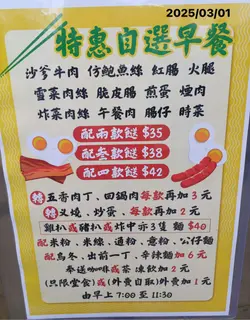 2025/03/01
特惠自選早餐
沙爹牛肉 仿鮑魚絲 紅腸 火腿
雪菜肉絲 脆皮腸 煎蛋 煙肉
炸菜肉絲 午餐肉 腸仔 時菜
配兩款餸 $35
配叁款餸 $38
配四款餸 $42
轉五香肉丁、回鍋肉每款再加3元
轉叉燒、炒蛋、每款再加2元
雞扒或豬扒或炸中亦3隻 $40
配米粉、米線、通粉、意粉、公仔麵
配烏冬、出前一丁、辛辣麵加6元
奉送咖啡或茶 凍飲加2元
(只限堂食)或(外賣自取)外賣加1元
由早上7:00至11:30